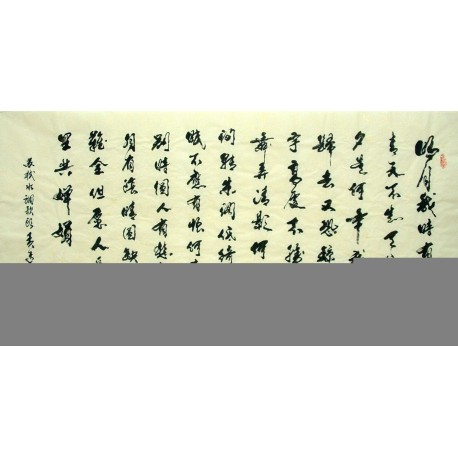 明月幾時有
青天不知天
夕是何年我
歸去又恐瓊
宇高處不勝
舞弄清影何
間轉朱閣低綺
眠不應有恨何
別時圓人有悲
月有陰晴圓缺
難全但願人
里共嬋娟
蘇軾水調歌頭